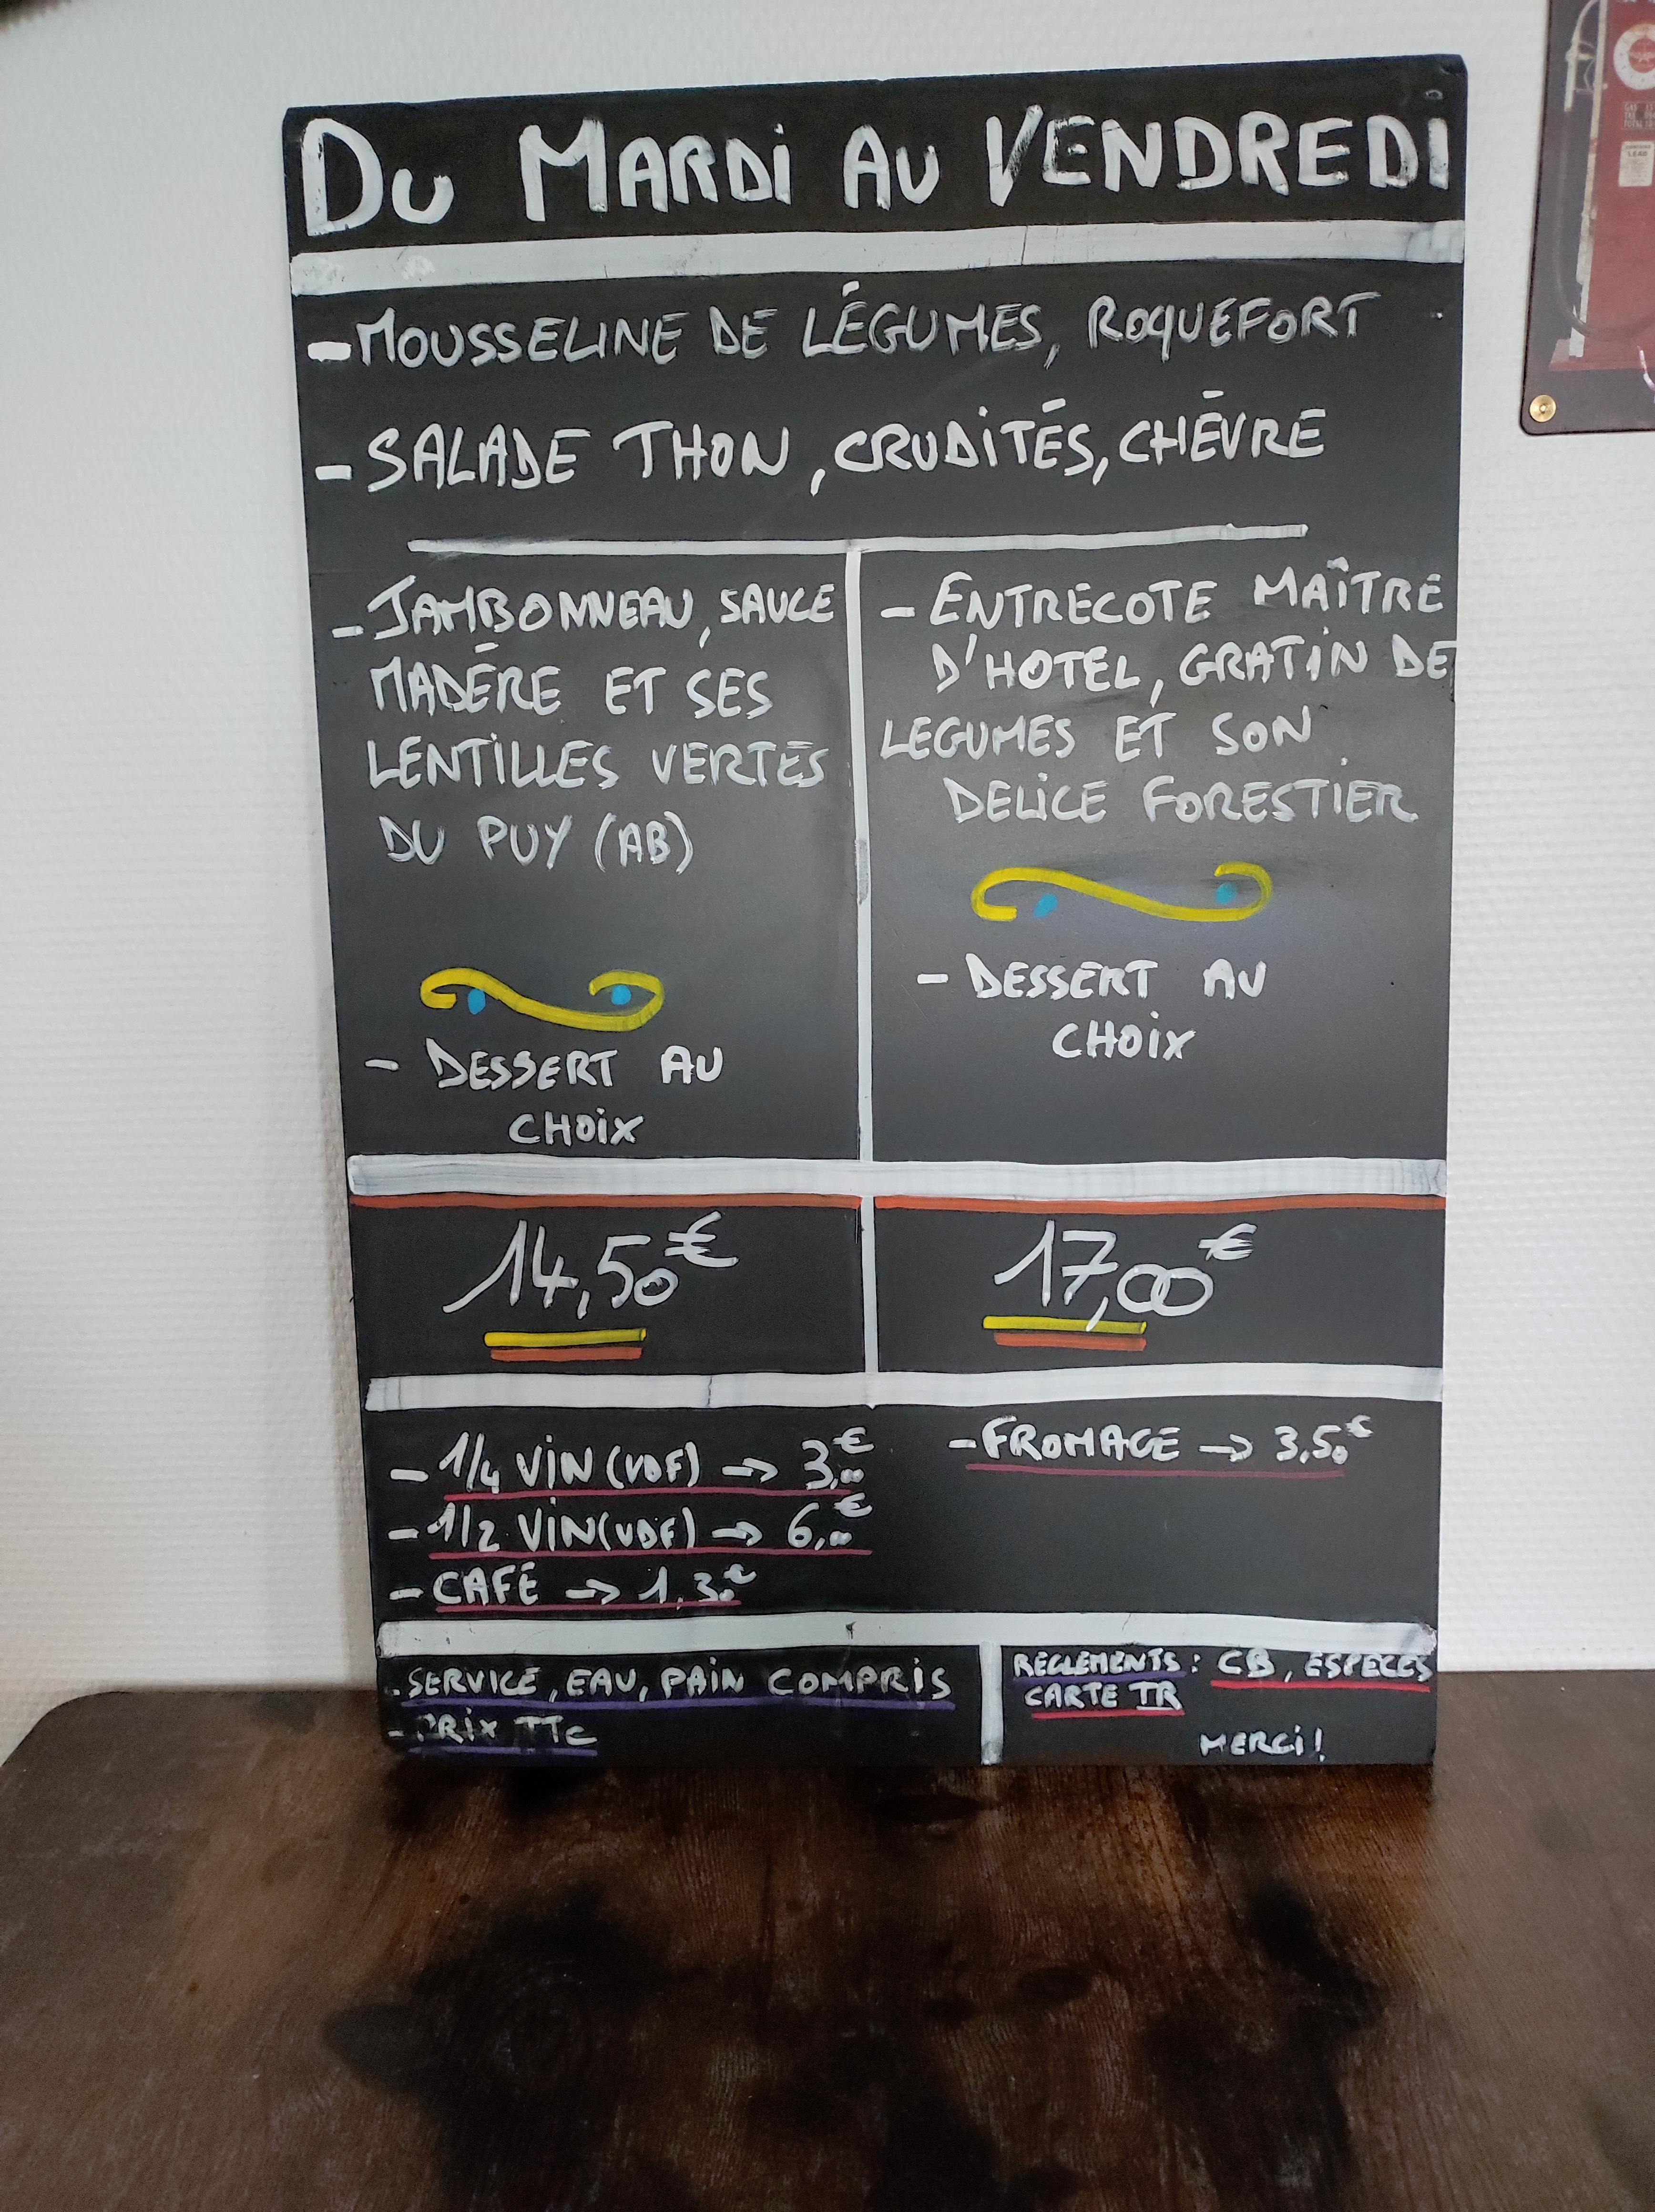 DU MARDI AU VENDREDI
- MOUSSELINE DE LÉGUMES, ROQUEFORT
- SALADE THON, CRUDITÉS, CHÈVRE
- JAMBONNEAU, SAUCE
MADÈRE ET SES
LENTILLES VERTES
DU PUY (AB)
- DESSERT AU
CHOIX
- ENTRECOTE MAÎTRE
D'HOTEL, GRATIN DE
LEGUMES ET SON
DELICE FORESTIER
- DESSERT AU
CHOIX
14,50€
17,00€
- 1/4 VIN (VDF) → 3,00€
- 1/2 VIN (VDF) → 6,00€
- CAFÉ → 1,30€
- FROMAGE → 3,50€
- SERVICE, EAU, PAIN COMPRIS
- PRIX TTC
REGLEMENTS : CB, ESPECES
CARTE TR
MERCI !
LEAD